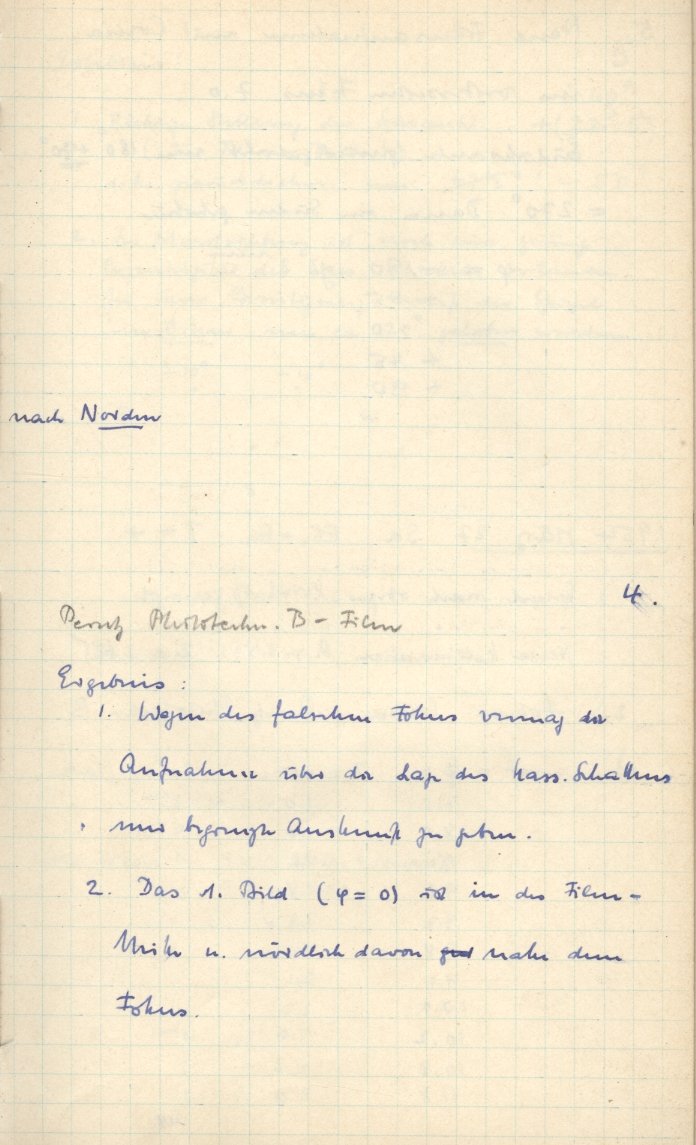 nach Norden
4.
Perutz Phototechn. B - Film
Ergebnis :
1. Wegen des falschen Fokus vermag die
Aufnahme über die Lage des Kass. Schattens
nur begrenzte Auskunft zu geben.
2. Das 1. Bild (φ = 0) ist in der Film-
Mitte u. nördlich davon nahe dem
Fokus.